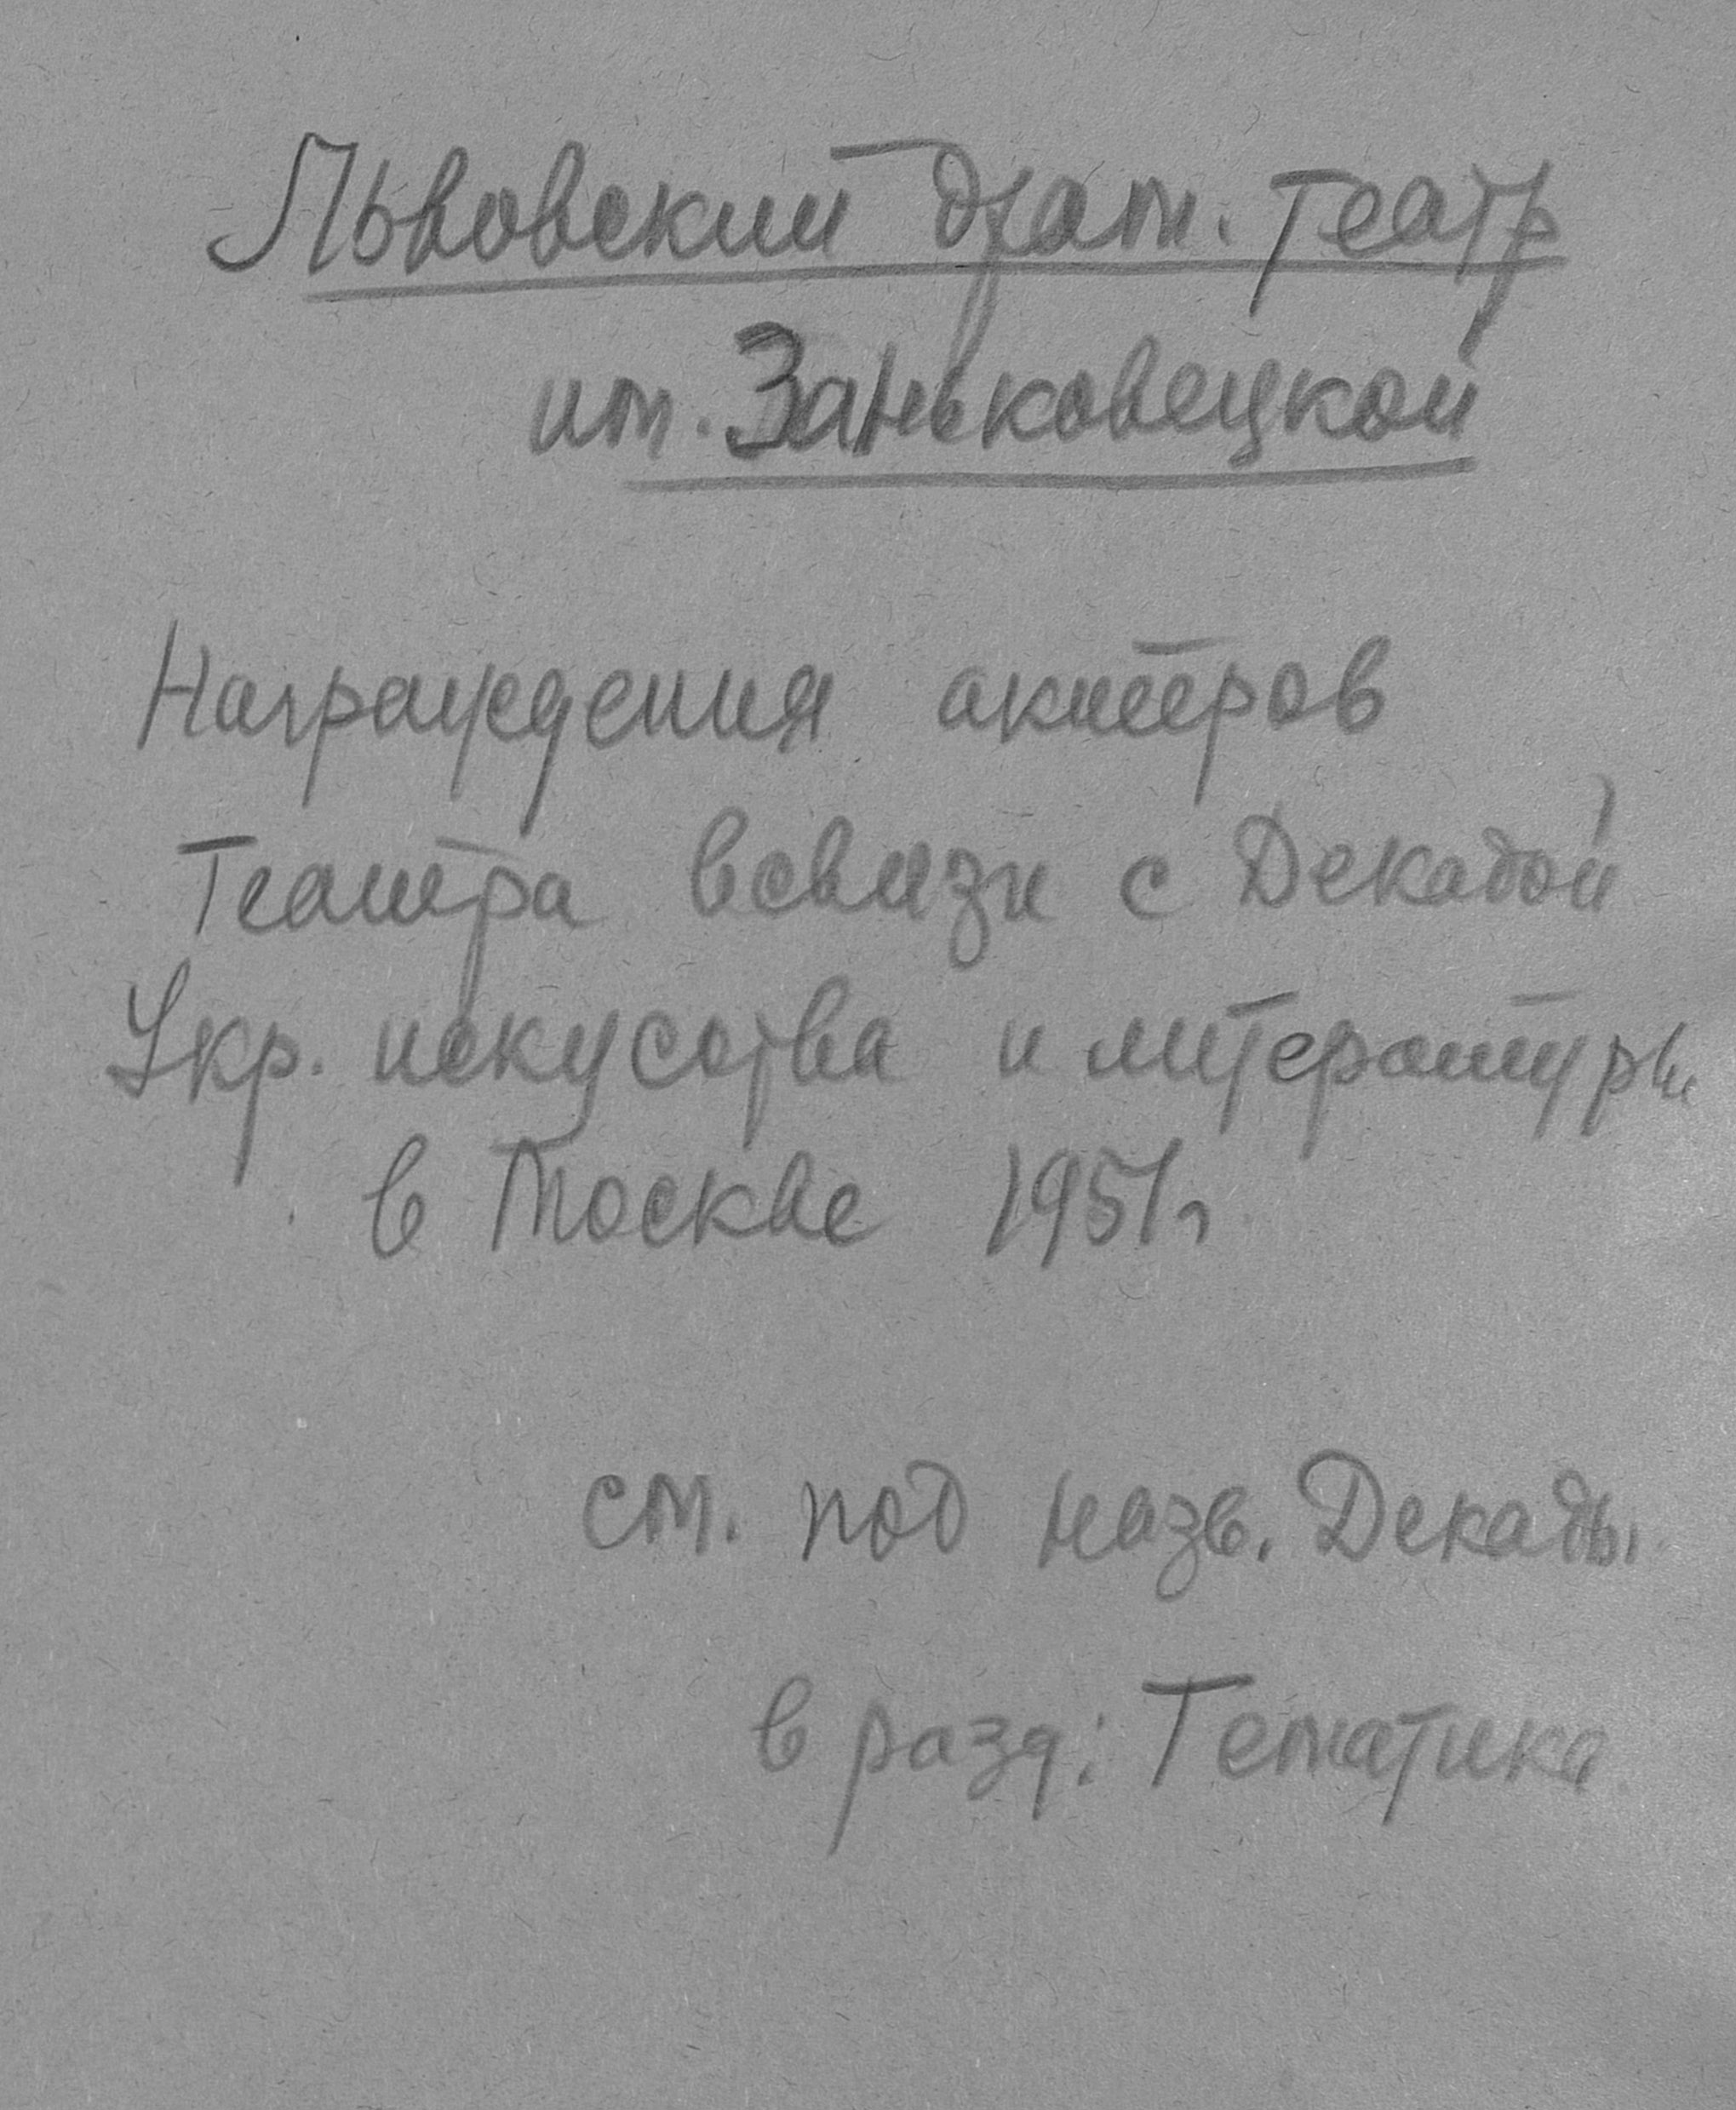 Львовский драм. театр
им. Заньковецкой
Награждения актеров
Театра всвязи с Декадой
Укр. искусства и литературы
в Москве 1951г
см. под назв. Декады
в разд: Тематика